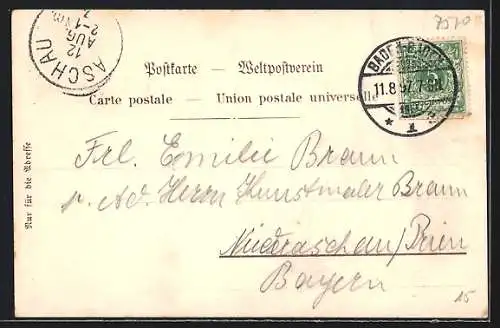 7570
ASCHAU
12
AUG.
2-1 Nm.
Postkarte — Weltpostverein
Carte postale — Union postale universelle
BADEN-BADEN
11.8.97.7-8N.
* 1
Nur für die Adresse
Frl. Emilie Braun
p. Ad. Herrn Kunstmaler Braun
Niederaschau/Prien
Bayern
15